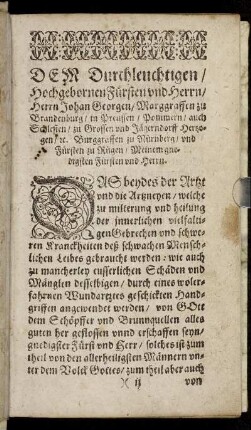 DEM Durchleuchtigen /
Hochgebornen Fürsten vnd Herrn /
Herrn Johan Georgen / Marggraffen zu
Brandenburg / in Preussen / Pommern / auch
Schlesien / zu Crossen vnd Jägerndorff Hertzo-
gen / ꝛc. Burggraffen zu Nürnberg / vnd
Fürsten zu Rügen / Meinem gne-
digsten Fürsten vnd Herrn.
DAS beydes der Artzt
vnd die Artzneyen / welche
zu milterung vnd heilung
der innerlichen vielfalti-
gen Gebrechen vnd schwe-
ren Kranckheiten deß schwachen Mensch-
lichen Leibes gebraucht werden: wie auch
zu mancherley eusserlichen Schäden vnd
Mänglen desselbigen / durch eines woler-
fahrnen Wundartztes geschickten Hand-
griffen angewendet werden / von GOtt
dem Schöpffer vnd Brunnquellen alles
guten her geflossen vnnd erschaffen seyn /
gnedigster Fürst vnd Herr / solches ist zum
theil von den allerheiligsten Männern vn-
ter dem Volck Gottes / zum theil aber auch
)( ij von